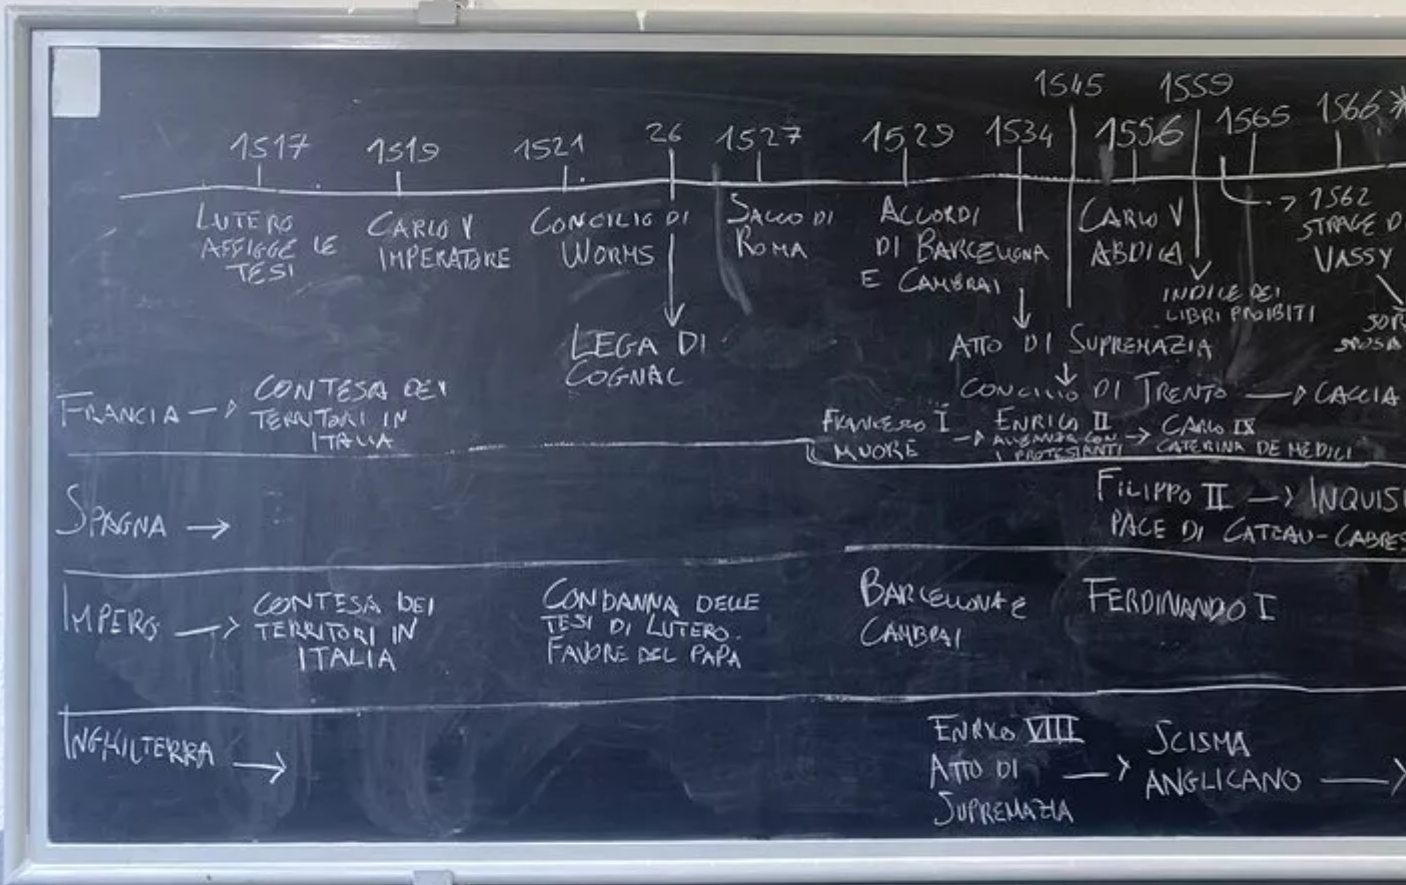 1545 1559
1517 1519 1521 26 1527 1529 1534 1556 1565 1566*
LUTERO
AFFIGGE LE
TESI
CARLO V
IMPERATORE
CONCILIO DI
WORMS
LEGA DI
COGNAC
SACCO DI
ROMA
ACCORDI
DI BARCELLONA
E CAMBRAI
ATTO DI SUPREMAZIA
CONCILIO DI TRENTO → CACCIA
CARLO V
ABDICA
INDICE DEI
LIBRI PROIBITI
→ 1562
STRAGE D
VASSY
SPOSA
FRANCIA → CONTESA DEI
TERRITORI IN
ITALIA
FRANCESCO I
MUORE
→ ENRICO II
ALLEANZA CON
I PROTESTANTI
→ CARLO IX
CATERINA DE MEDICI
SPAGNA →
FILIPPO II → INQUISI
PACE DI CATEAU-CABRES
IMPERO → CONTESA DEI
TERRITORI IN
ITALIA
CONDANNA DELLE
TESI DI LUTERO.
FAVORE DEL PAPA
BARCELLONA E
CAMBRAI
FERDINANDO I
INGHILTERRA →
ENRICO VIII
ATTO DI
SUPREMAZIA
→ SCISMA
ANGLICANO →